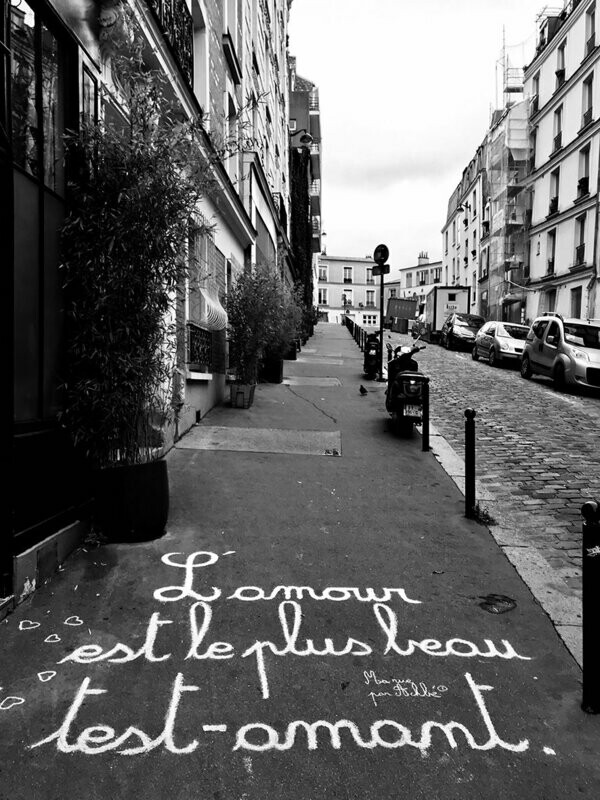 L'amour
est le plus beau
test-amant.
Ma rue
par Achbé